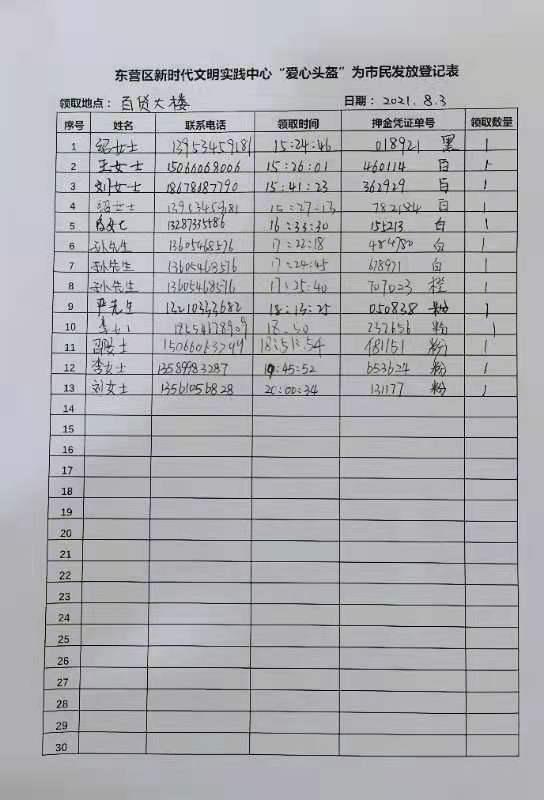 东营区新时代文明实践中心“爱心头盔”为市民发放登记表
领取地点：百货大楼 日期：2021.8.3
序号 姓名 联系电话 领取时间 押金凭证单号 领取数量
1 纪女士 13953459181 15:24:46 018921 黑 1
2 王女士 15066068006 15:26:01 460114 白 1
3 刘女士 18678187790 15:41:23 362929 白 1
4 女士 15:27:13 782184 白 1
5 13287335186 16:33:30 155213 白 1
6 孙先生 13605468576 17:22:18 484780 白 1
7 孙先生 13605468576 17:24:45 678971 白 1
8 孙先生 13605468576 17:25:40 707023 橙 1
9 严先生 18:13:25 050838 粉 1
10 18:50 252656 粉 1
11 邵女士 18:51:54 181151 粉 1
12 李女士 13589983287 19:45:52 653624 粉 1
13 刘女士 13561056828 20:00:34 131177 粉 1
14
15
16
17
18
19
20
21
22
23
24
25
26
27
28
29
30